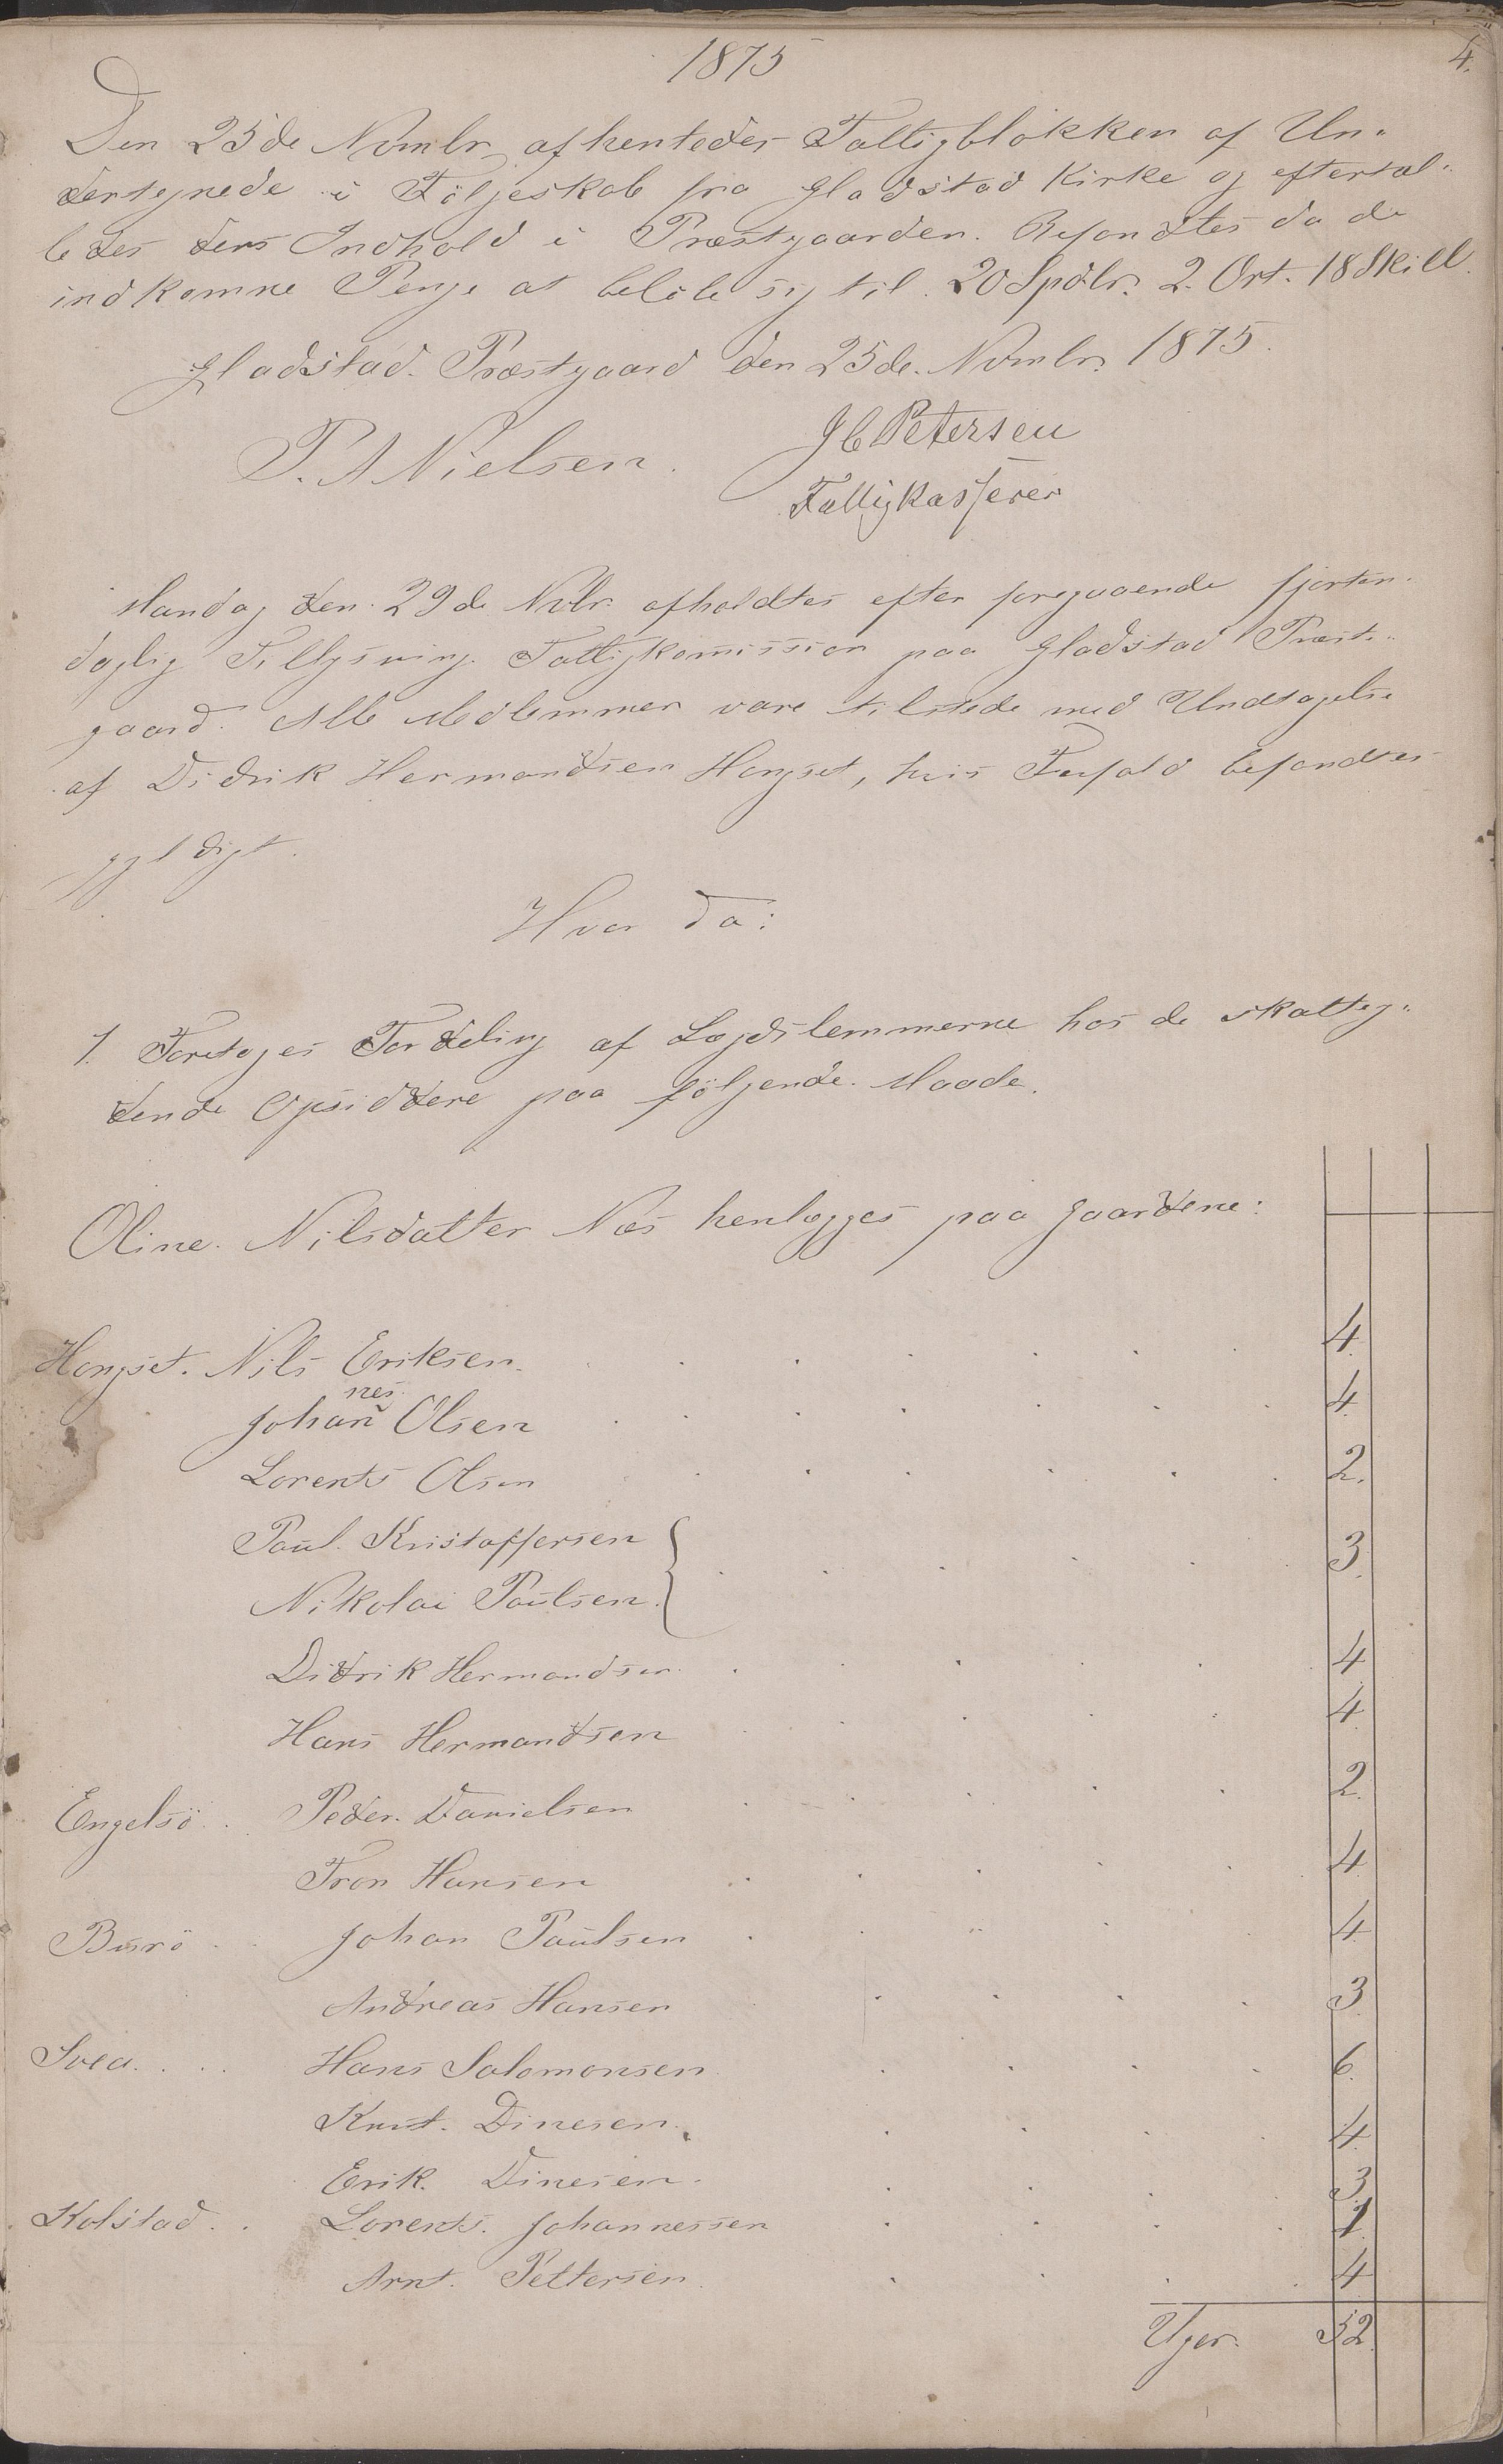 1875
4.
Den 25de Novmbr. afhentedes Fattigblokken af Un-
dertegnede i Føljeskab fra Gladstad Kirke og eftertal-
ledes dens Indhold i Præstgaarden. Befandtes da de
indkomne Penge at beløbe sig til 20 Spdlr. 2. Ort. 18 Skill.
Gladstad Præstgaard den 25de. Novmbr. 1875.
P. A Nielsen.
J C Petersen
Fattigkasserer
Mandag den 29de Nvbr. afholdtes efter foregaaende fjorten-
daglig Tillysning Fattigkomission paa Gladstad Præst-
gaard. Alle Medlemmer vare tilstede med Undtagelse
af Didrik Hermandsen Hongset, hvis Forfald befandtes
gyldigt.
Hvor da:
1. Foretoges Fordeling af Lægdslemmerne hos de skattey-
dende Opsiddere paa följende Maade.
Oline Nilsdatter Næs henlægges paa Gaardene:
Hongset. Nils Eriksen 4
nes
Johan Olsen 4
Lorents Olsen 2.
Paul Kristoffersen
Nikolai Paulsen } 3
Didrik Hermandsen 4
Hans Hermandsen 4
Engelsö Peder Danielsen 2.
Tron Hansen 4
Burö Johan Paulsen 4
Andreas Hansen 3
Svea Hans Salomonsen 6
Knut Dinesen 4
Erik Dinesen 3
Kolstad Lorents Johannessen 1
Arnt Pettersen 4
Uger. 52